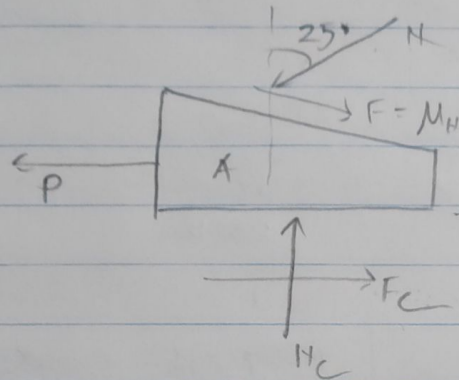 25° N
F = μN
A
P
Fc
Nc